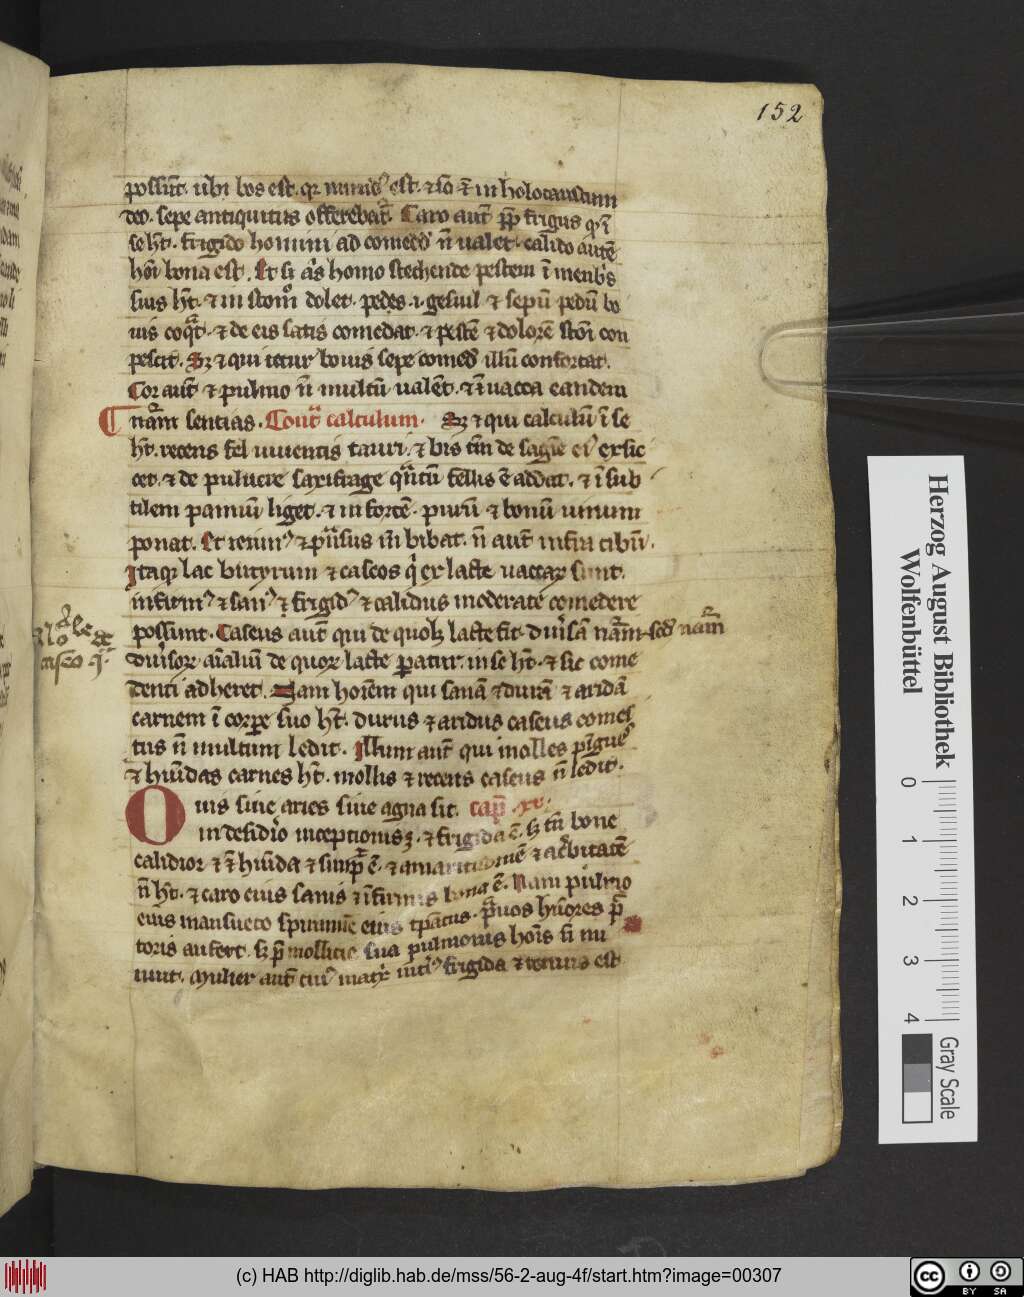 152
possūt. ubi bos est. qꝛ mundꝰ est. ⁊ iō ī in holocaustum
deo. sepe antiquitus offerebat᷑. Caro aut̄ pp̄ frigus qḋ ī
se hʼt. frigido homini ad comedd̄ n̄ ualet. calido autē
hōi bona est. Et si aľs homo stechende pestem ī menbʼs
suis hʼt. ⁊ in stomͦ dolet. pedes .i. gesiul ⁊ sepū pedū bo
uis coq̄t. ⁊ de eis satis comedat. ⁊ pestē ⁊ dolorē stōi con
pescit. Sꝫ ⁊ qui iecur bouis sepe comed̄ illū confortat.
Cor aut̄ ⁊ pulmo n̄ multū ualēt. ⁊ ī uacca eandem
nām sentias. Cont᷑ calculum. Sꝫ ⁊ qui calculū ī se
hʼt. recens fel uiuentis tauri. ⁊ bis tm̄ de sagīe eiꝰ exsic
cet. ⁊ de puluere saxifrage q̄ntū fellis ē addat. ⁊ ī sub
tilem pannū liget. ⁊ in fortē purū ⁊ bonū uinum
ponat. Et ieiunꝰ ⁊ p̄nsus īn bibat. n̄ aut̄ infra cibū.
Itaqꝫ lac butyrum ⁊ caseos q̇ ex lacte uaccaꝝ sunt.
infirmꝰ ⁊ sanꝰ ⁊ frigidꝰ ⁊ calidus moderate comedere
possunt. Caseus aut̄ qui de quolꝫ lacte fit. diūsā nām sed̄ nām
diūsoꝝ aīaliū de quoꝝ lacte paratur in se hʼt. ⁊ sic come
denti adheret. Nam hoīem qui sanā ⁊ durā ⁊ aridā
carnem ī corpe suo hʼt. durus ⁊ aridus caseus comes
tus n̄ multum ledit. Illum aut̄ qui molles pīgues
⁊ hūidas carnes hʼt. mollis ⁊ recens caseus n̄ ledit.
Ouis siue aries siue agna sit. cap̄. xv.
in desidīo inceptionis ꝫ. ⁊ frigida ē. sꝫ tn̄ boue
calidior ⁊ ē hūida ⁊ simp̄ ē. ⁊ amaritudinē ⁊ acʼbitatē
n̄ hʼt. ⁊ caro eius sanis ⁊ īfirmis bona ē. Nam pulmo
eius mansueto spiramīe eius tpātus. prauos hūores p̄
toris aufert. sꝫ p̄ mollicie sua pulmonis hoīs si mi
nuit. Mulier aut̄ cuiꝰ mat᷑x intʼꝰ frigida ⁊ tenuis est
Herzog August Bibliothek
Wolfenbüttel
0 1 2 3 4
Gray Scale
(c) HAB http://diglib.hab.de/mss/56-2-aug-4f/start.htm?image=00307
cc BY SA